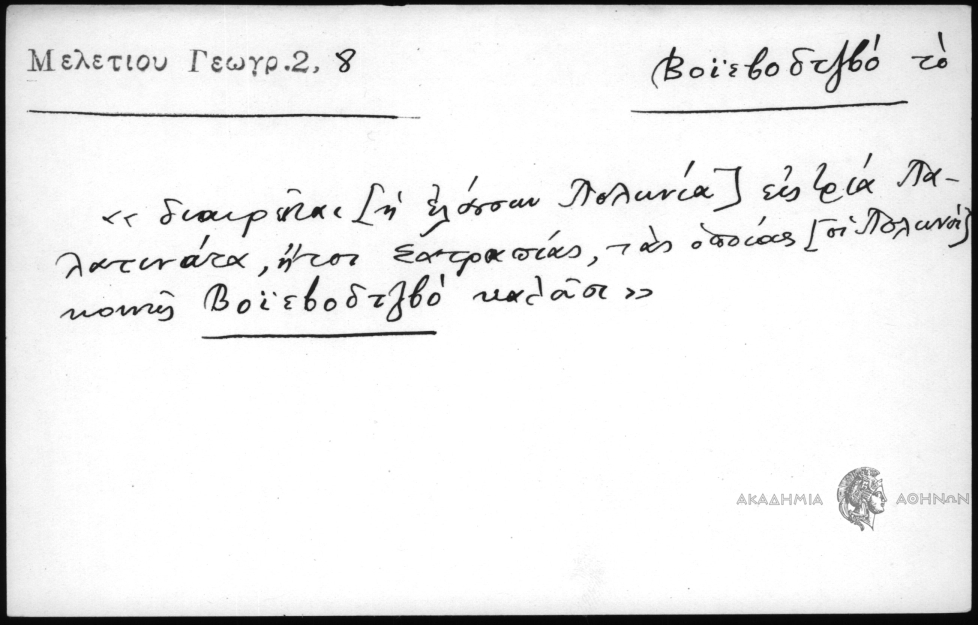 Μελετιου Γεωγρ.2, 8
Βοϊεβοδτζβό τὸ
«διαιρεῖται [ἡ ἐλάσσων Πολωνία] εἰς τρία Πα-
λατινάτα, ἤτοι Σατραπίας, τὰς ὁποίας [οἱ Πολωνοὶ]
κοινῶς Βοϊεβοδτζβό καλοῦσι»
ΑΚΑΔΗΜΙΑ ΑΘΗΝΩΝ